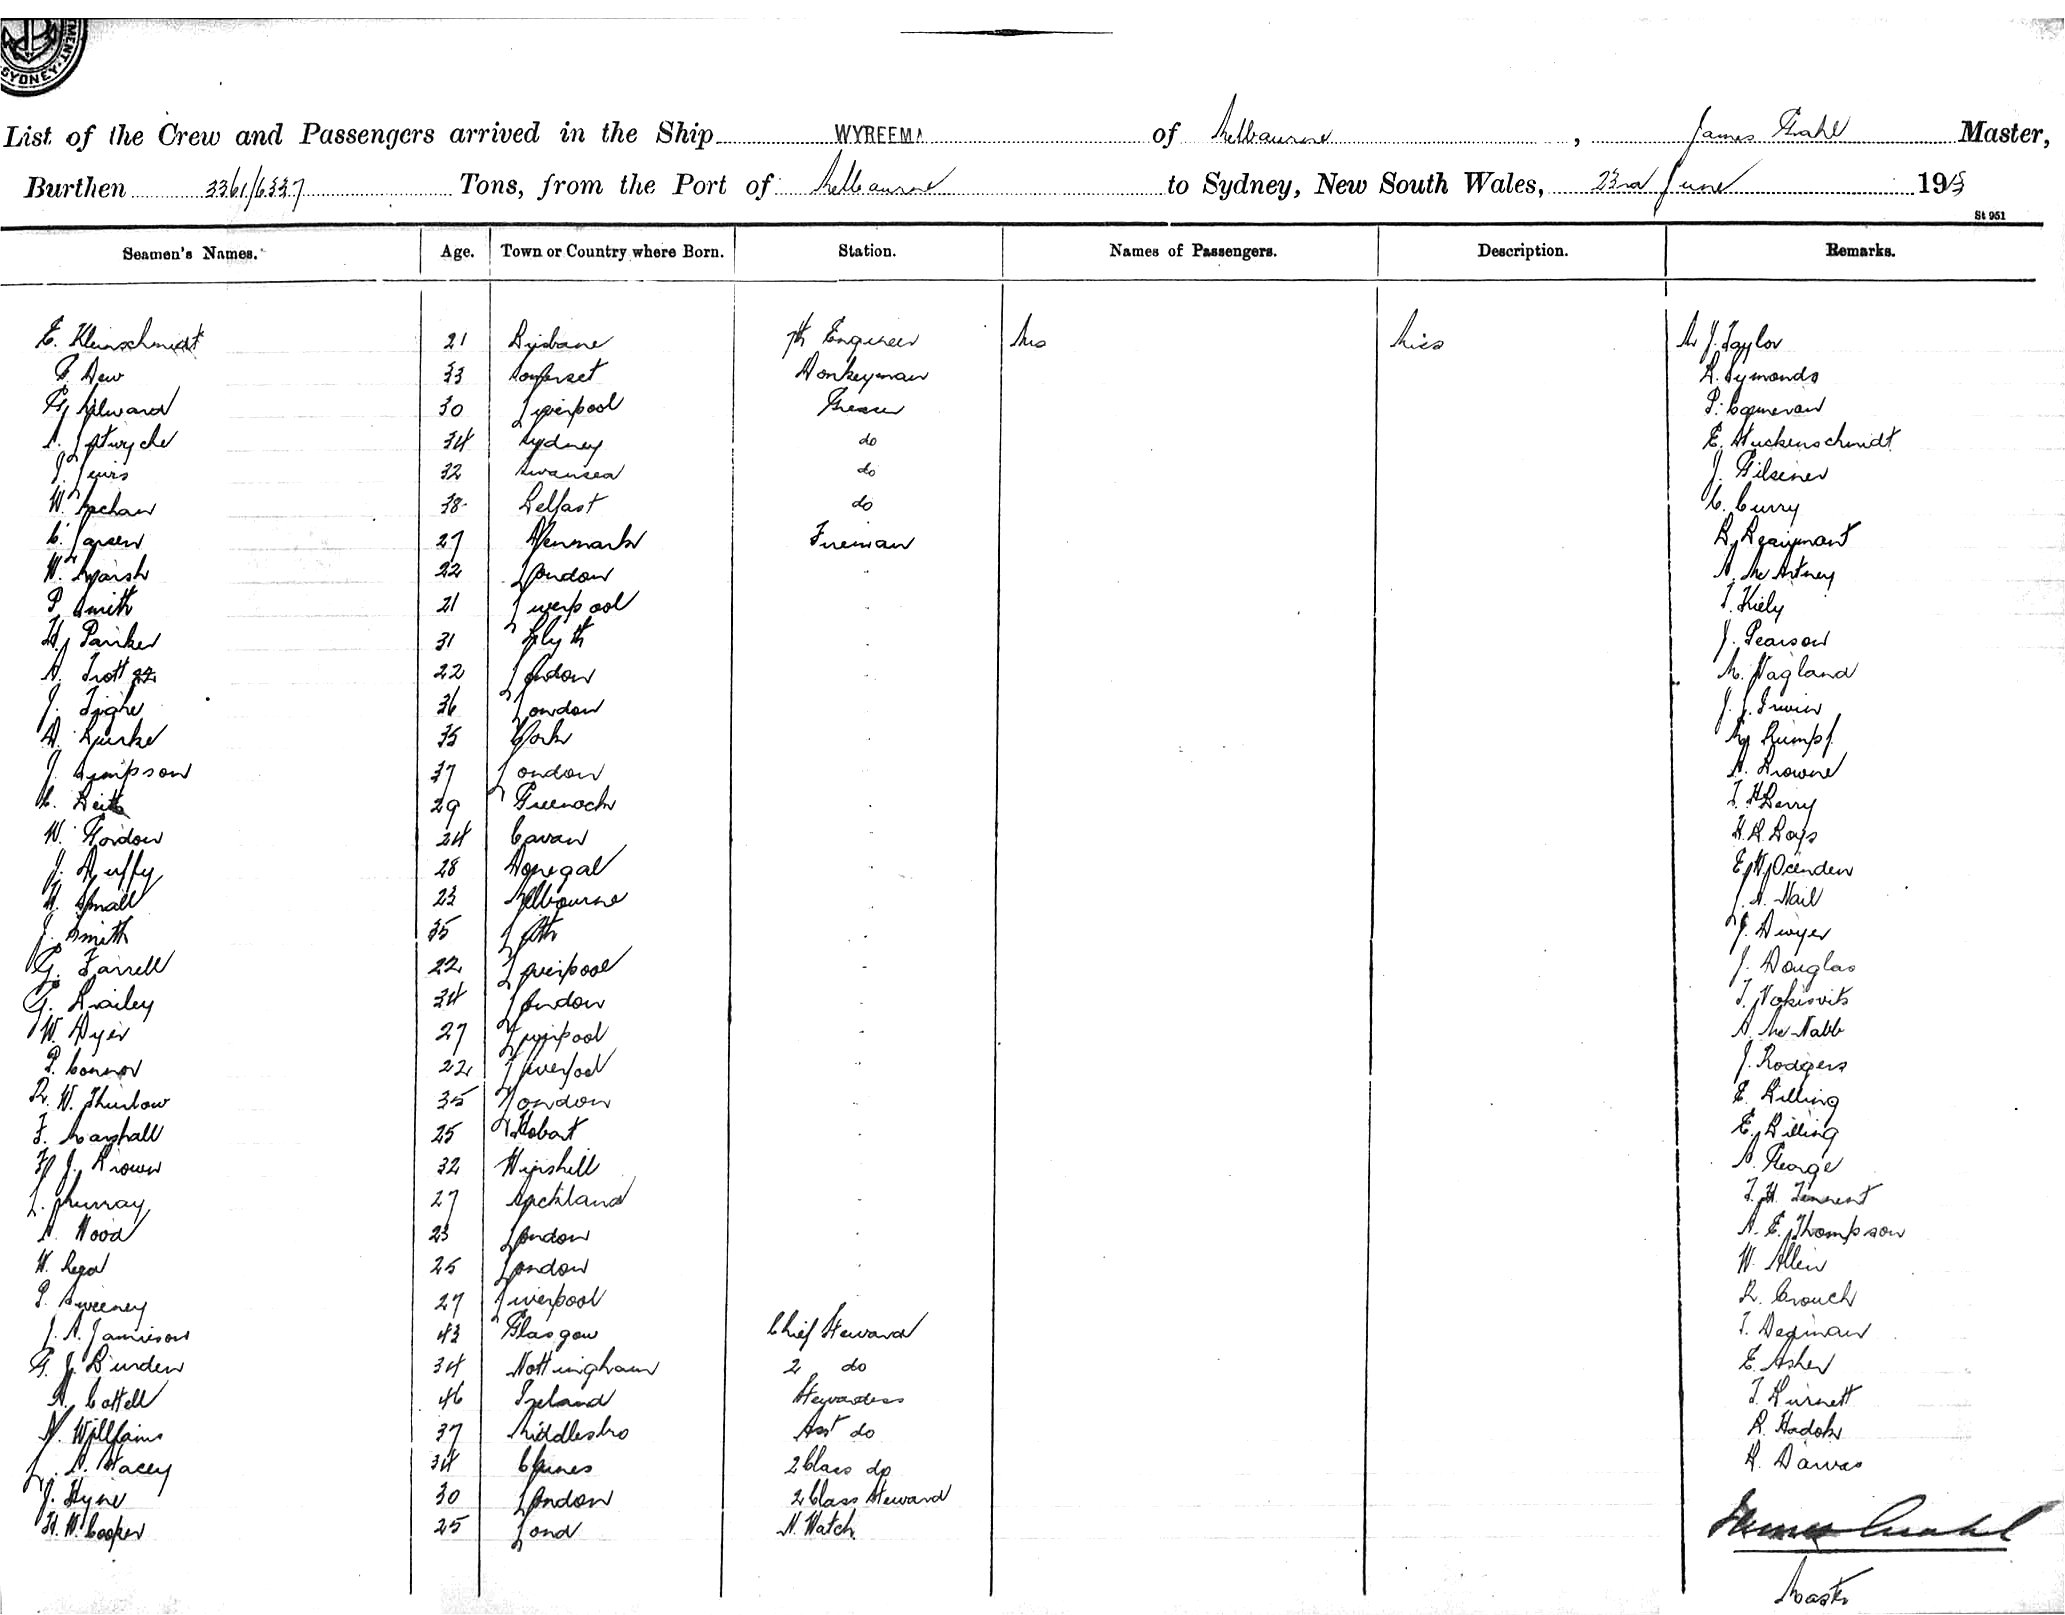 SYDNEY
List of the Crew and Passengers arrived in the Ship WYREEMA of Melbourne, James Grahl Master,
Burthen 3361/6337 Tons, from the Port of Melbourne to Sydney, New South Wales, 23rd June 191
St 951
Seamen's Names. Age. Town or Country where Born. Station. Names of Passengers. Description. Remarks.
E. Kleinschmidt 21 Brisbane 7th Engineer Mrs Miss Mr J. Taylor
Dew 33 Somerset Donkeyman R. Symonds
G. Aylward 30 Liverpool Greaser P. Cameron
A. Lutwyche 34 Sydney do E. Stuckenschmidt
J. Lewis 32 Swansea do J. Gilsener
W. 38 Belfast do C. Curry
C. Larsen 27 Denmark Fireman R. Beaumont
W. Marsh 22 London - A. McArtney
P. Smith 21 Liverpool - T. Kiely
H. Parker 31 Blyth - J. Pearson
A. Trott 22 London - M. Wagland
J. Tighe 36 London - J. J. Irwin
D. Burke 35 Cork - Rumpf
J. Simpson 37 London - A. Browne
C. 29 Greenock - T. H Berry
W. Gordon 24 Cavan - H. R Boys
J. Duffy 28 Donegal - E. W. Ockenden
H. Small 23 Melbourne - J. A. Nail
J. Smith 35 Leith - J. Dwyer
G. Farrell 22 Liverpool - J. Douglas
G. Bailey 34 London - T.
W. Dyer 27 Liverpool - A. McNabb
P. Connor 22 Liverpool - J. Rodgers
R. W. Thurlow 35 London - E. Billing
F. Marshall 25 Hobart - E. Billing
J. Brown 32 - A. George
L. Murray 27 Auckland - T. H. Tennent
A. Wood 23 London - A. E. Thompson
W. 25 London - W. Allen
P. Sweeney 27 Liverpool R. Crouch
J. A. Jamieson 43 Glasgow Chief Steward T. Dedman
G. J. Burden 34 Nottingham 2 do E. Asher
A. Cottell 46 Ireland Stewardess T. Burnett
N. Williams 37 Middlesbro Asst do R. Hadok
L. A. Stacey 34 2 Class do R.
J. Hyne 30 London 2 Class Steward
H. W. Cooper 25 Lond N. Watch
James Grahl
Master